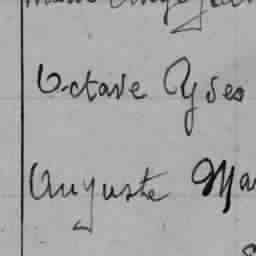 Octave Yves
Auguste Ma